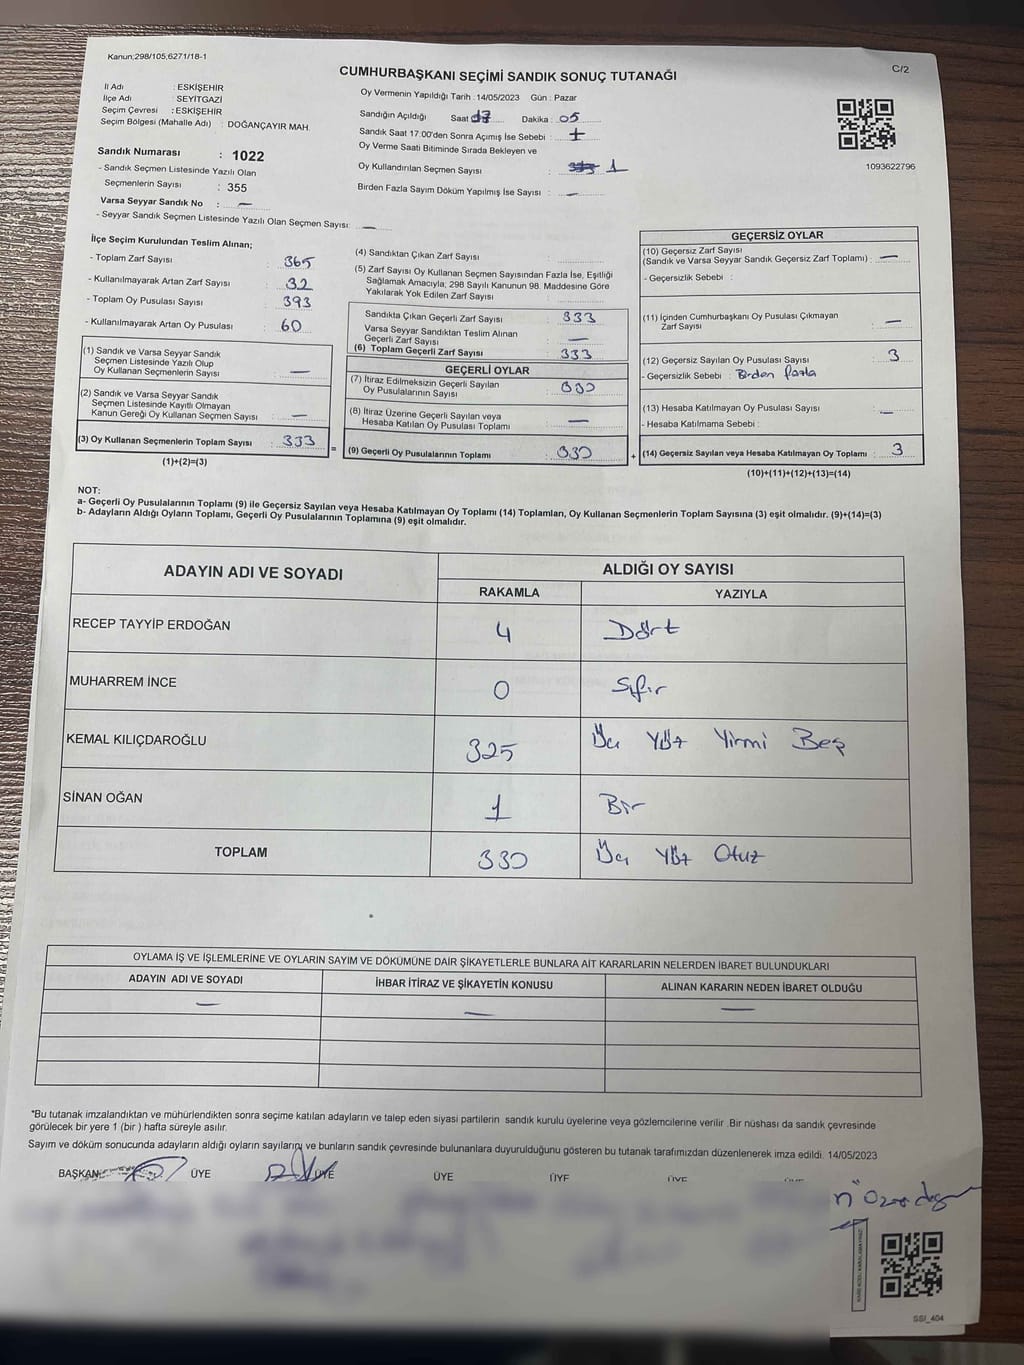 Kanun;298/105,6271/18-1
C/2
CUMHURBAŞKANI SEÇİMİ SANDIK SONUÇ TUTANAĞI
İl Adı : ESKİŞEHİR
İlçe Adı : SEYİTGAZİ
Seçim Çevresi : ESKİŞEHİR
Seçim Bölgesi (Mahalle Adı) : DOĞANÇAYIR MAH.
Sandık Numarası : 1022
- Sandık Seçmen Listesinde Yazılı Olan
Seçmenlerin Sayısı : 355
Varsa Seyyar Sandık No : —
- Seyyar Sandık Seçmen Listesinde Yazılı Olan Seçmen Sayısı: —
Oy Vermenin Yapıldığı Tarih : 14/05/2023 Gün : Pazar
Sandığın Açıldığı Saat : 17 Dakika : 05
Sandık Saat 17:00'den Sonra Açımış İse Sebebi :
Oy Verme Saati Bitiminde Sırada Bekleyen ve
Oy Kullandırılan Seçmen Sayısı : 1
Birden Fazla Sayım Döküm Yapılmış İse Sayısı : —
1093622796
İlçe Seçim Kurulundan Teslim Alınan;
- Toplam Zarf Sayısı : 365
- Kullanılmayarak Artan Zarf Sayısı : 32
- Toplam Oy Pusulası Sayısı : 393
- Kullanılmayarak Artan Oy Pusulası : 60
(1) Sandık ve Varsa Seyyar Sandık
Seçmen Listesinde Yazılı Olup
Oy Kullanan Seçmenlerin Sayısı : —
(2) Sandık ve Varsa Seyyar Sandık
Seçmen Listesinde Kayıtlı Olmayan
Kanun Gereği Oy Kullanan Seçmen Sayısı : —
(3) Oy Kullanan Seçmenlerin Toplam Sayısı : 333
(1)+(2)=(3)
=
(4) Sandıktan Çıkan Zarf Sayısı :
(5) Zarf Sayısı Oy Kullanan Seçmen Sayısından Fazla İse, Eşitliği
Sağlamak Amacıyla, 298 Sayılı Kanunun 98. Maddesine Göre
Yakılarak Yok Edilen Zarf Sayısı :
Sandıkta Çıkan Geçerli Zarf Sayısı : 333
Varsa Seyyar Sandıktan Teslim Alınan
Geçerli Zarf Sayısı : —
(6) Toplam Geçerli Zarf Sayısı : 333
GEÇERLİ OYLAR
(7) İtiraz Edilmeksizin Geçerli Sayılan
Oy Pusulalarının Sayısı : 330
(8) İtiraz Üzerine Geçerli Sayılan veya
Hesaba Katılan Oy Pusulası Toplamı : —
(9) Geçerli Oy Pusulalarının Toplamı : 330
+
GEÇERSİZ OYLAR
(10) Geçersiz Zarf Sayısı
(Sandık ve Varsa Seyyar Sandık Geçersiz Zarf Toplamı) : —
- Geçersizlik Sebebi :
(11) İçinden Cumhurbaşkanı Oy Pusulası Çıkmayan
Zarf Sayısı : —
(12) Geçersiz Sayılan Oy Pusulası Sayısı : 3
- Geçersizlik Sebebi : Birden fazla
(13) Hesaba Katılmayan Oy Pusulası Sayısı : —
- Hesaba Katılmama Sebebi :
(14) Geçersiz Sayılan veya Hesaba Katılmayan Oy Toplamı : 3
(10)+(11)+(12)+(13)=(14)
NOT:
a- Geçerli Oy Pusulalarının Toplamı (9) ile Geçersiz Sayılan veya Hesaba Katılmayan Oy Toplamı (14) Toplamları, Oy Kullanan Seçmenlerin Toplam Sayısına (3) eşit olmalıdır. (9)+(14)=(3)
b- Adayların Aldığı Oyların Toplamı, Geçerli Oy Pusulalarının Toplamına (9) eşit olmalıdır.
ADAYIN ADI VE SOYADI ALDIĞI OY SAYISI
RAKAMLA YAZIYLA
RECEP TAYYİP ERDOĞAN 4 Dört
MUHARREM İNCE 0 Sıfır
KEMAL KILIÇDAROĞLU 325 Üç Yüz Yirmi Beş
SİNAN OĞAN 1 Bir
TOPLAM 330 Üç Yüz Otuz
OYLAMA İŞ VE İŞLEMLERİNE VE OYLARIN SAYIM VE DÖKÜMÜNE DAİR ŞİKAYETLERLE BUNLARA AİT KARARLARIN NELERDEN İBARET BULUNDUKLARI
ADAYIN ADI VE SOYADI İHBAR İTİRAZ VE ŞİKAYETİN KONUSU ALINAN KARARIN NEDEN İBARET OLDUĞU
— — —
*Bu tutanak imzalandıktan ve mühürlendikten sonra seçime katılan adayların ve talep eden siyasi partilerin sandık kurulu üyelerine veya gözlemcilerine verilir .Bir nüshası da sandık çevresinde
görülecek bir yere 1 (bir ) hafta süreyle asılır.
Sayım ve döküm sonucunda adayların aldığı oyların sayılarını ve bunların sandık çevresinde bulunanlara duyurulduğunu gösteren bu tutanak tarafımızdan düzenlenerek imza edildi. 14/05/2023
BAŞKAN ÜYE ÜYE ÜYE ÜYE ÜYE
SSI_404